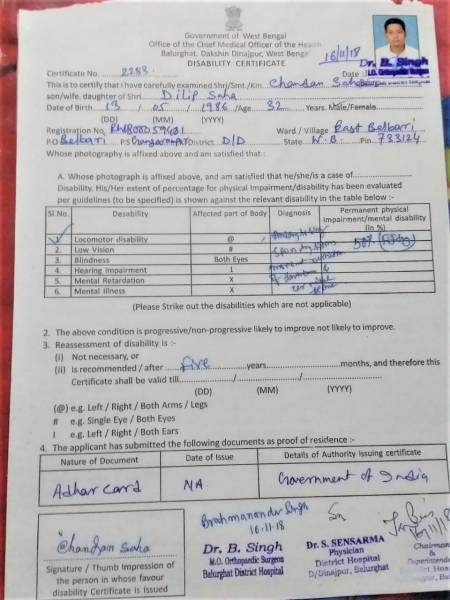 Government of West Bengal
Office of the Chief Medical Officer of the Health
Balurghat, Dakshin Dinajpur, West Bengal
DISABILITY CERTIFICATE
16/11/18
Dr. B. Singh
M.O. Orthopaedic Surgeon
Certificate No. 2288 Date :
This is to certify that I have carefully examined Shri/Smt./Km. Chandan Saha
son/wife, daughter of Shri Dilip Saha
Date of Birth 13 / 05 / 1986 /Age 32 Years. Male/Female
(DD) (MM) (YYYY)
Registration No. Ward / Village East Belbari
P.O Belbari P.S District D/D State W.B. Pin 733124
Whose photography is affixed above and am satisfied that :
A. Whose photograph is affixed above, and am satisfied that he/she/is a case of
Disability. His/Her extent of percentage for physical Impairment/disability has been evaluated
per guidelines (to be specified) is shown against the relevant disability in the table below :-
Sl.No. Desability Affected part of Body Diagnosis Permanent physical impairment/mental disability (in %)
Locomotor disability @ 50%
2. Low Vision #
3. Blindness Both Eyes
4. Hearing Impairment 1
5. Mental Retardation X
6. Mental Illness X
(Please Strike out the disabilities which are not applicable)
2. The above condition is progressive/non-progressive likely to improve not likely to improve.
3. Reassessment of disability is :-
(i) Not necessary, or
(ii) is recommended / after five years months, and therefore this
Certificate shall be valid till / /
(DD) (MM) (YYYY)
(@) e.g. Left / Right / Both Arms / Legs
# e.g. Single Eye / Both Eyes
I e.g. Left / Right / Both Ears
4. The applicant has submitted the following documents as proof of residence :-
Nature of Document Date of Issue Details of Authority Issuing certificate
Adhar card NA Government of India
Brahmanander Singh
16.11.18
Chandan Saha
Signature / Thumb Impression of
the person in whose favour
disability Certificate is Issued
Dr. B. Singh
M.O. Orthopaedic Surgeon
Balurghat District Hospital
Dr. S. SENSARMA
Physician
District Hospital
D/Dinajpur, Balurghat
16/11/18
Chairman
&
Superintendent